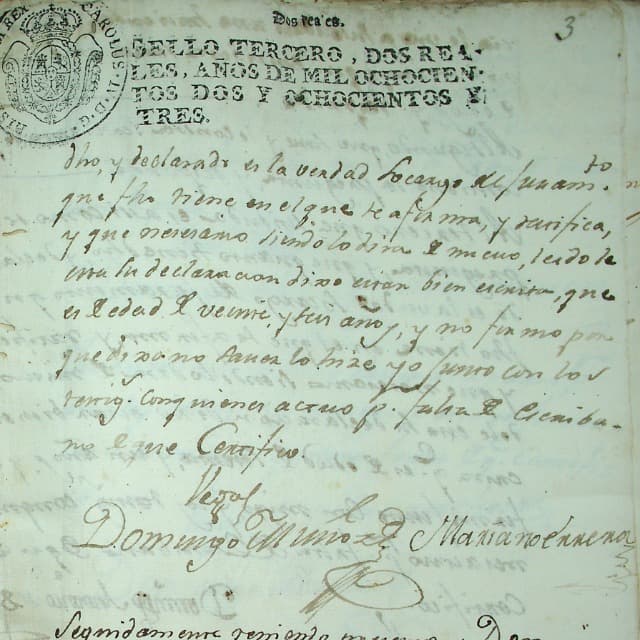 Dos reales.
3
SELLO TERCERO, DOS REA-
LES, AÑOS DE MIL OCHOCIEN-
TOS DOS Y OCHOCIENTOS Y
TRES.
dho, y declarado es la verdad so cargo del juram.to
que fho tiene en el que se afirma, y ratifica,
y que necesario siendo lo dira de nuevo, leido le
esta su declaracion dixo estar bien escrita, que
es de edad de veinte, y seis años, y no firmo por
que dixo no saver lo hize yo junto con los
testig.s con quienes actuo p.r falta de Escriba-
no de que Certifico.
Vegas
Domingo Muñoz Mariano Errera
Seguidamente teniendo